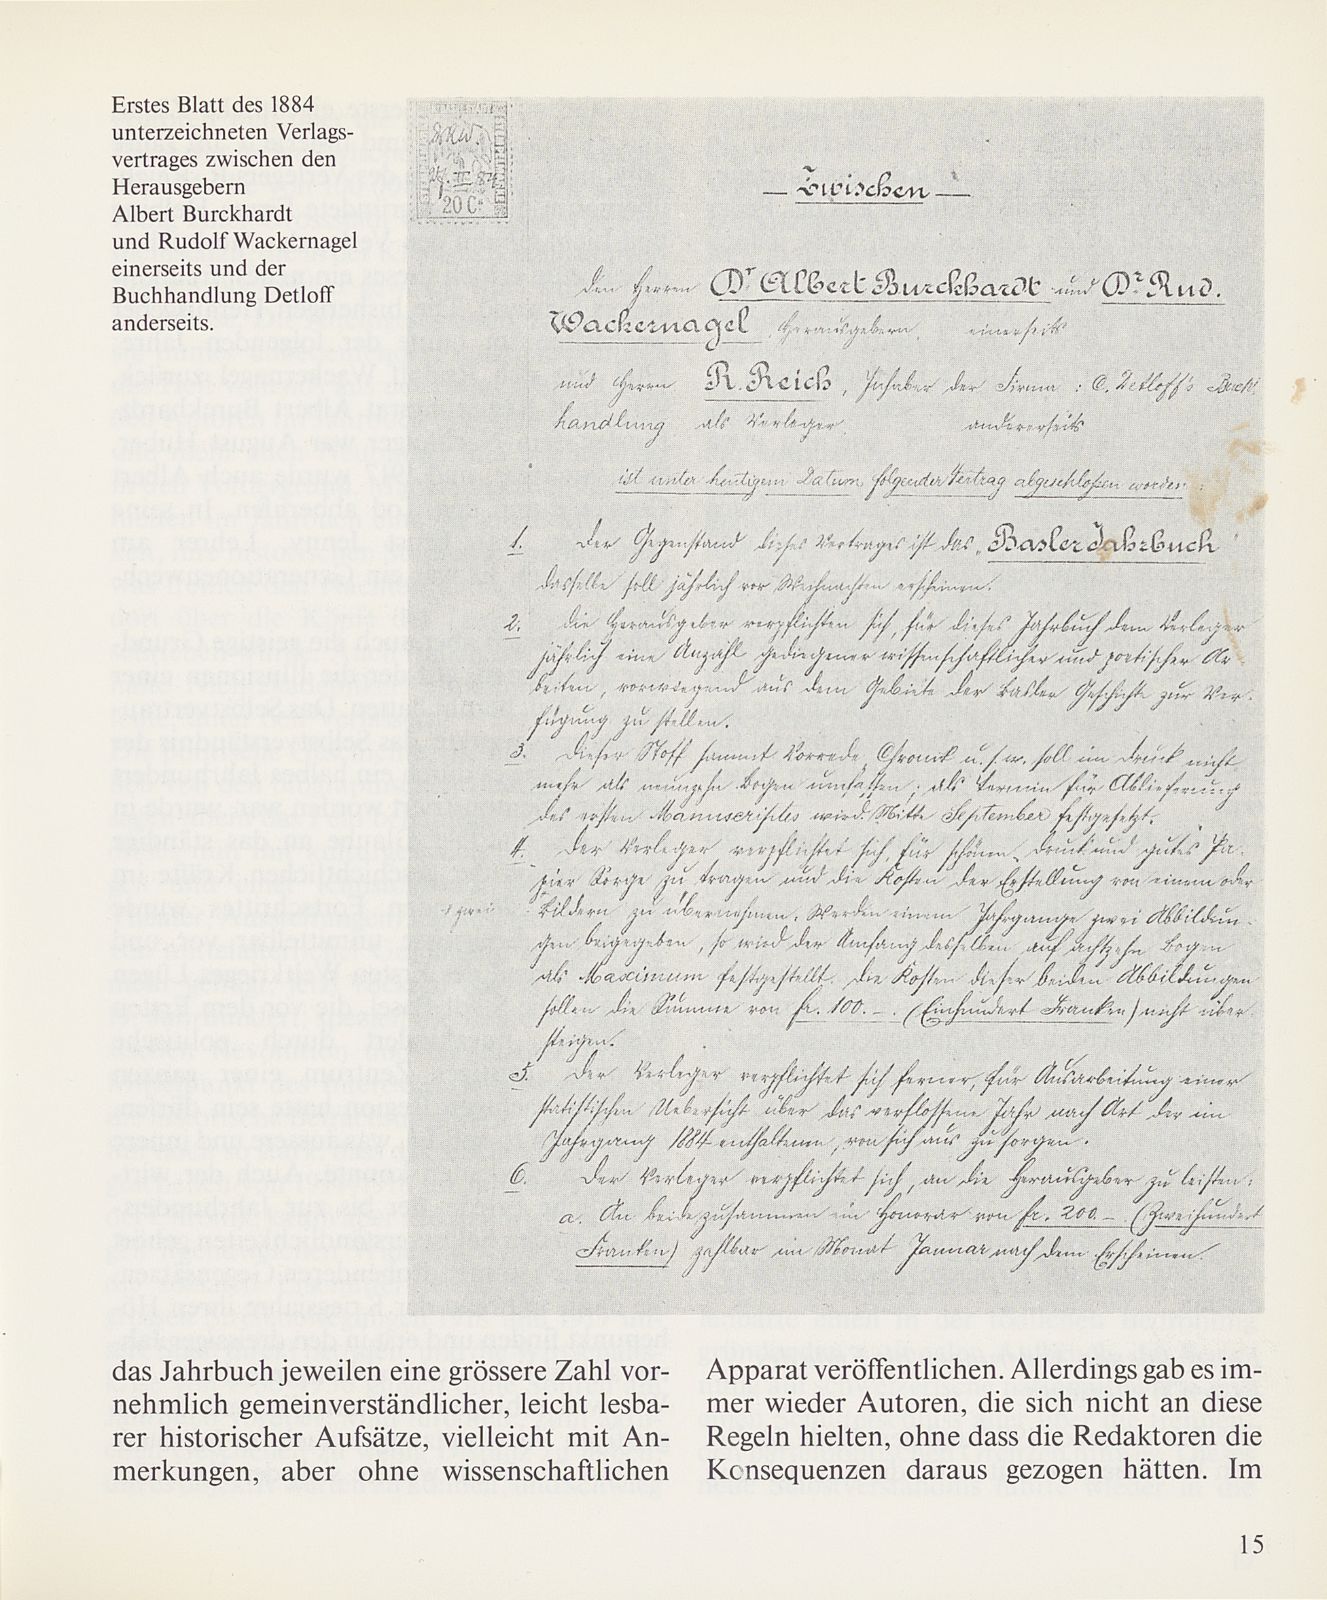 Erstes Blatt des 1884
unterzeichneten Verlags-
vertrages zwischen den
Herausgebern
Albert Burckhardt
und Rudolf Wackernagel
einerseits und der
Buchhandlung Detloff
anderseits.
20 Cs
— Zwischen —
den Herren Dr Albert Burckhardt und Dr Rud.
Wackernagel, Herausgebern, einerseits
und Herrn R. Reich, Inhaber der Firma: C. Detloff's Buch-
handlung als Verleger, andererseits
ist unter heutigem Datum folgender Vertrag abgeschlossen worden:
1. Der Gegenstand dieses Vertrages ist das „Basler Jahrbuch"
dasselbe soll jährlich vor Weihnachten erscheinen.
2. Die Herausgeber verpflichten sich, für dieses Jahrbuch dem Verleger
jährlich eine Anzahl gediegener wissenschaftlicher und poetischer Ar-
beiten, vorwiegend aus dem Gebiete der Basler Geschichte zur Ver-
fügung zu stellen.
3. Dieser Stoff sammt Vorrede, Chronik u. s. w. soll im Druck nicht
mehr als neunzehn Bogen umfassen; als Termin für Ablieferung
des ersten Manuscriptes wird Mitte September festgesetzt.
4. Der Verleger verpflichtet sich, für schönen Druck und gutes Pa-
pier Sorge zu tragen und die Kosten der Erstellung von einem oder
zwei Bildern zu übernehmen. Werden einem Jahrgange zwei Abbildun-
gen beigegeben, so wird der Umfang desselben auf achtzehn Bogen
als Maximum festgestellt. Die Kosten dieser beiden Abbildungen
sollen die Summe von fr. 100. — . (Einhundert Franken) nicht über-
steigen.
5. Der Verleger verpflichtet sich ferner, für Ausarbeitung einer
statistischen Uebersicht über das verflossene Jahr nach Art der im
Jahrgang 1884 enthaltenen, von sich aus zu sorgen.
6. Der Verleger verpflichtet sich, an die Herausgeber zu leisten:
a. An beide zusammen ein Honorar von fr. 200. — (Zweihundert
Franken) zahlbar im Monat Januar nach dem Erscheinen.
das Jahrbuch jeweilen eine grössere Zahl vor-
nehmlich gemeinverständlicher, leicht lesba-
rer historischer Aufsätze, vielleicht mit An-
merkungen, aber ohne wissenschaftlichen
Apparat veröffentlichen. Allerdings gab es im-
mer wieder Autoren, die sich nicht an diese
Regeln hielten, ohne dass die Redaktoren die
Konsequenzen daraus gezogen hätten. Im
15